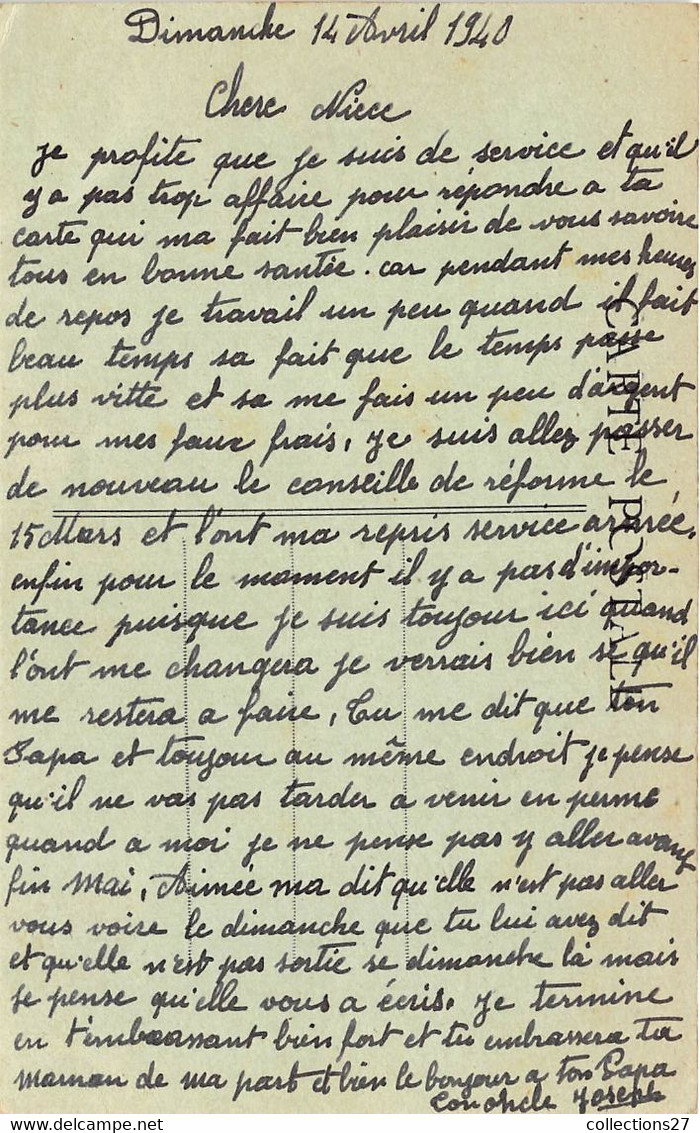 Dimanche 14 Avril 1940
Chere Niece
je profite que je suis de service et qu'il
y a pas trop affaire pour répondre a ta
carte qui ma fait bien plaisir de vous savoire
tous en bonne santée. car pendant mes heures
de repos je travail un peu quand il fait
beau temps sa fait que le temps passe
plus vitte et sa me fais un peu d'argent
pour mes faux frais, je suis allez passer
de nouveau le conseille de réforme le
15 Mars et l'ont ma repris service armée,
enfin pour le moment il y a pas d'impor-
tance puisque je suis toujour ici quand
l'ont me changera je verrais bien se qu'il
me restera a faire, Tu me dit que ton
Papa et toujour au même endroit je pense
qu'il ne vas pas tarder a venir en perme
quand a moi je ne pense pas y aller avant
fin Mai, Aimée ma dit qu'elle n'est pas aller
vous voire le dimanche que tu lui avez dit
et qu'elle n'est pas sortie se dimanche là mais
je pense qu'elle vous a écris. je termine
en t'embrassant bien fort et tu embrassera ta
maman de ma part et bien le bonjour a ton Papa
Ton oncle Joseph
CARTE POSTALE
collections27